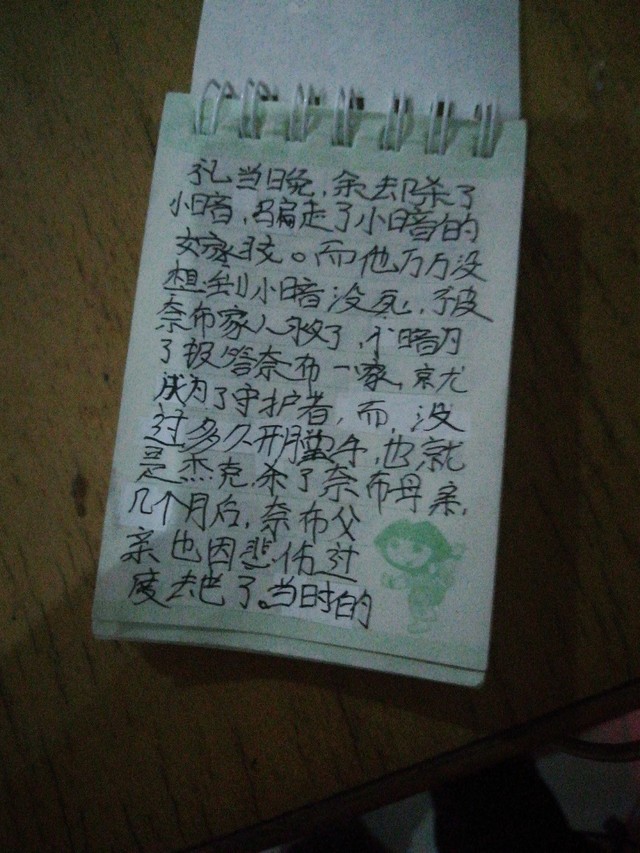 礼当晚，余却杀了
小暗，骗走了小暗的
嫁妆。而他万万没
想到小暗没死，被
奈布家人救了，小暗为
了报答奈布一家，就
成为了守护者，而，没
过多久开膛手，也就
是杰克，杀了奈布母亲，
几个月后，奈布父
亲也因悲伤过
度去世了。当时的